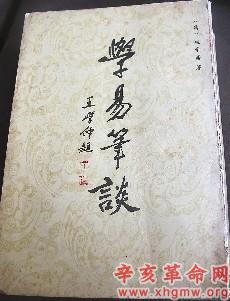 學易筆談
王學仲題
辛亥革命网
www.xhgmw.org